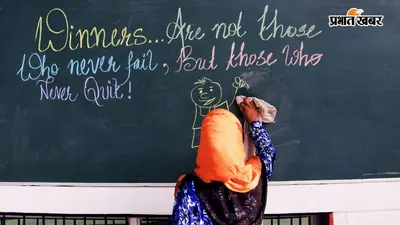 Winners... Are not those
Who never fail, But those Who
Never Quit!
प्रभात खबर